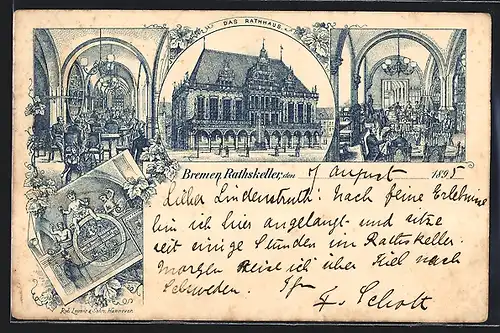 DAS RATHHAUS.
Bremen, Rathskeller, den 7 August 1895
Lieber Lindenstruth: Nach feine Erlebnisse
bin ich hier angelangt und sitze
seit einige Stunden im Rathskeller.
Morgen reise ich über Kiel nach
Schweden.
F. Schott
Rob. Leunis & Sohn, Hannover.